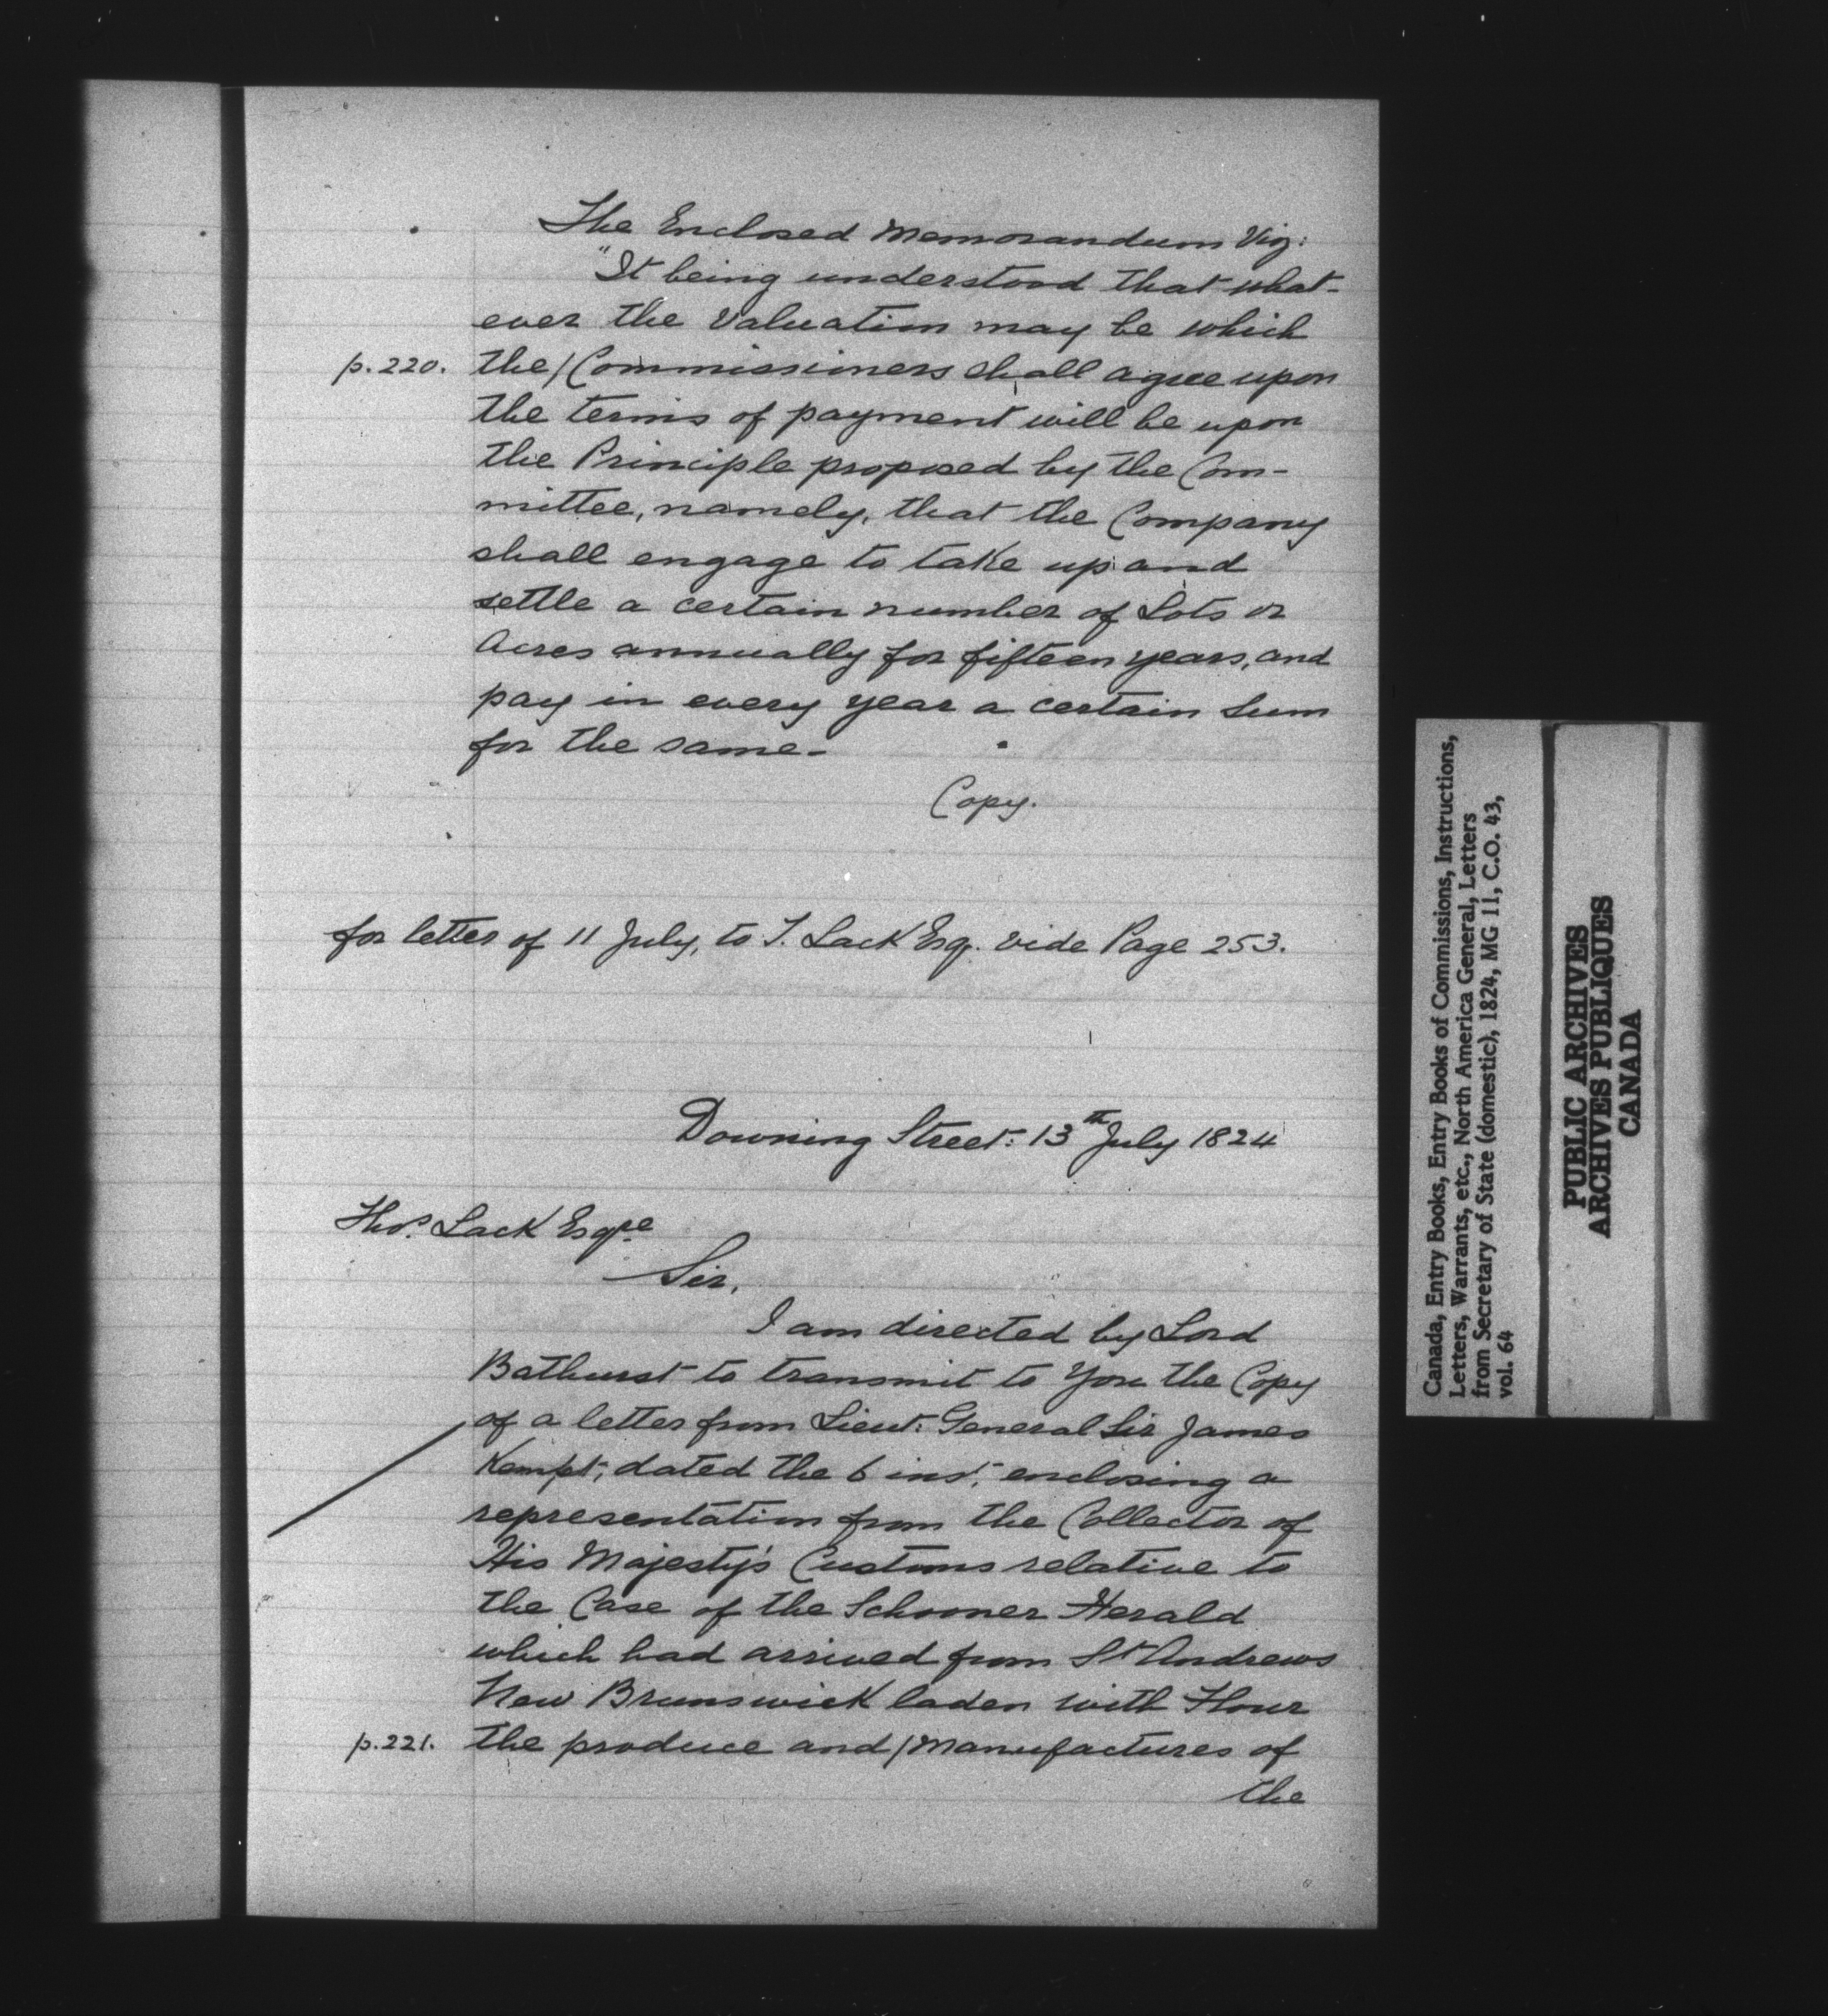 The Enclosed Memorandum Viz:
"It being understood that what-
ever the Valuation may be which
p. 220. the / Commissioners shall agree upon
the terms of payment will be upon
the Principle proposed by the Com-
mittee, namely, that the Company
shall engage to take up and
settle a certain number of Lots or
Acres annually for fifteen years, and
pay in every year a certain Sum
for the same-
Copy.
for letter of 11 July, to T. Lack Esq. vide Page 253.
Downing Street: 13th July 1824
Thos. Lack Esqre
Sir,
I am directed by Lord
Bathurst to transmit to You the Copy
of a letter from Lieut: General Sir James
Kempt, dated the 6 inst, enclosing a
representation from the Collector of
His Majesty's Customs relative to
the Case of the Schooner Herald
which had arrived from St Andrews
New Brunswick laden with Flour
p. 221. the produce and / Manufactures of
the
Canada, Entry Books, Entry Books of Commissions, Instructions,
Letters, Warrants, etc., North America General, Letters
from Secretary of State (domestic), 1824, MG 11, C.O. 43,
vol. 64
PUBLIC ARCHIVES
ARCHIVES PUBLIQUES
CANADA